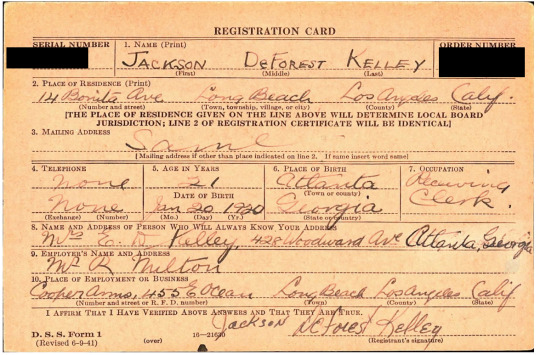 REGISTRATION CARD
SERIAL NUMBER 1. NAME (Print) ORDER NUMBER
JACKSON DEFOREST KELLEY
(First) (Middle) (Last)
2. PLACE OF RESIDENCE (Print)
14 Bonita Ave Long Beach Los Angeles Calif.
(Number and street) (Town, township, village, or city) (County) (State)
[THE PLACE OF RESIDENCE GIVEN ON THE LINE ABOVE WILL DETERMINE LOCAL BOARD
JURISDICTION; LINE 2 OF REGISTRATION CERTIFICATE WILL BE IDENTICAL]
3. MAILING ADDRESS
Same
[Mailing address if other than place indicated on line 2. If same insert word same]
4. TELEPHONE 5. AGE IN YEARS 6. PLACE OF BIRTH 7. OCCUPATION
none 21 Atlanta Receiving
DATE OF BIRTH (Town or county) Clerk.
none Jan 20 1920 Georgia
(Exchange) (Number) (Mo.) (Day) (Yr.) (State or country)
8. NAME AND ADDRESS OF PERSON WHO WILL ALWAYS KNOW YOUR ADDRESS
Mrs E. D. Kelley, 428 Woodward Ave Atlanta, Georgia
9. EMPLOYER'S NAME AND ADDRESS
Mr R Milton
10. PLACE OF EMPLOYMENT OR BUSINESS
Cooper Arms, 455 E Ocean Long Beach Los Angeles Calif
(Number and street or R. F. D. number) (Town) (County) (State)
I AFFIRM THAT I HAVE VERIFIED ABOVE ANSWERS AND THAT THEY ARE TRUE.
Jackson DeForest Kelley
D. S. S. Form 1 16—21630 (Registrant's signature)
(Revised 6-9-41) (over)